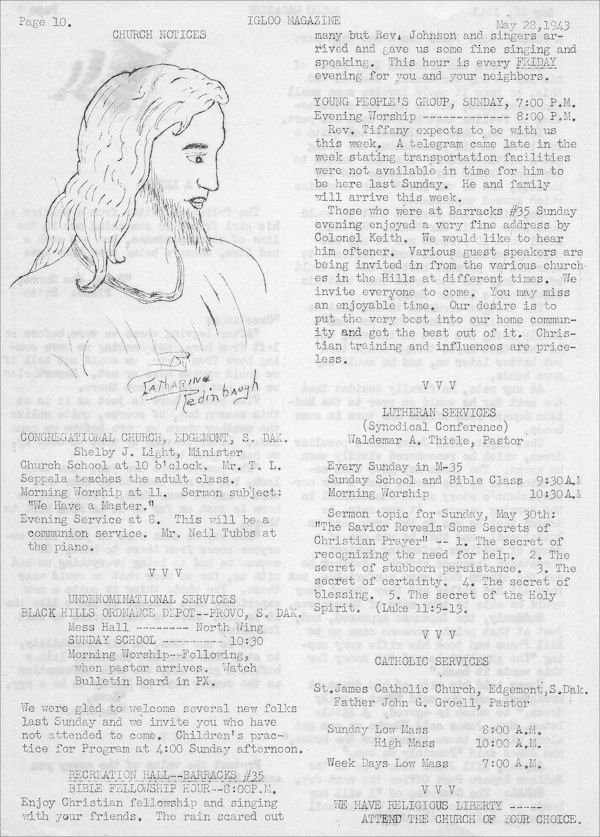 Page 10.
IGLOO MAGAZINE
May 28,1943
CHURCH NOTICES
By
Katharine
Redinbaugh
CONGREGATIONAL CHURCH, EDGEMONT, S. DAK.
Shelby J. Light, Minister
Church School at 10 o'clock. Mr. T. L.
Seppala teaches the adult class.
Morning Worship at 11. Sermon subject:
"We Have a Master."
Evening Service at 8. This will be a
communion service. Mr. Neil Tubbs at
the piano.
V V V
UNDENOMINATIONAL SERVICES
BLACK HILLS ORDNANCE DEPOT--PROVO, S. DAK.
Mess Hall -------- North Wing
SUNDAY SCHOOL ---------- 10:30
Morning Worship--Following,
when pastor arrives. Watch
Bulletin Board in PX.
We were glad to welcome several new folks
last Sunday and we invite you who have
not attended to come. Children's prac-
tice for Program at 4:00 Sunday afternoon.
RECREATION HALL--BARRACKS #35
BIBLE FELLOWSHIP HOUR--8:00P.M.
Enjoy Christian fellowship and singing
with your friends. The rain scared out
many but Rev. Johnson and singers ar-
rived and gave us some fine singing and
speaking. This hour is every FRIDAY
evening for you and your neighbors.
YOUNG PEOPLE'S GROUP, SUNDAY, 7:00 P.M.
Evening Worship ------------- 8:00 P.M.
Rev. Tiffany expects to be with us
this week. A telegram came late in the
week stating transportation facilities
were not available in time for him to
be here last Sunday. He and family
will arrive this week.
Those who were at Barracks #35 Sunday
evening enjoyed a very fine address by
Colonel Keith. We would like to hear
him oftener. Various guest speakers are
being invited in from the various church-
es in the Hills at different times. We
invite everyone to come. You may miss
an enjoyable time. Our desire is to
put the very best into our home commun-
ity and get the best out of it. Chris-
tian training and influences are price-
less.
V V V
LUTHERAN SERVICES
(Synodical Conference)
Waldemar A. Thiele, Pastor
Every Sunday in M-35
Sunday School and Bible Class 9:30A.M
Morning Worship 10:30A.M
Sermon topic for Sunday, May 30th:
"The Savior Reveals Some Secrets of
Christian Prayer" -- 1. The secret of
recognizing the need for help. 2. The
secret of stubborn persistance. 3. The
secret of certainty. 4. The secret of
blessing. 5. The secret of the Holy
Spirit. (Luke 11:5-13.
V V V
CATHOLIC SERVICES
St.James Catholic Church, Edgemont,S.Dak.
Father John G. Groell, Pastor
Sunday Low Mass 8:00 A.M.
High Mass 10:00 A.M.
Week Days Low Mass 7:00 A.M.
V V V
WE HAVE RELIGIOUS LIBERTY -----
ATTEND THE CHURCH OF YOUR CHOICE.